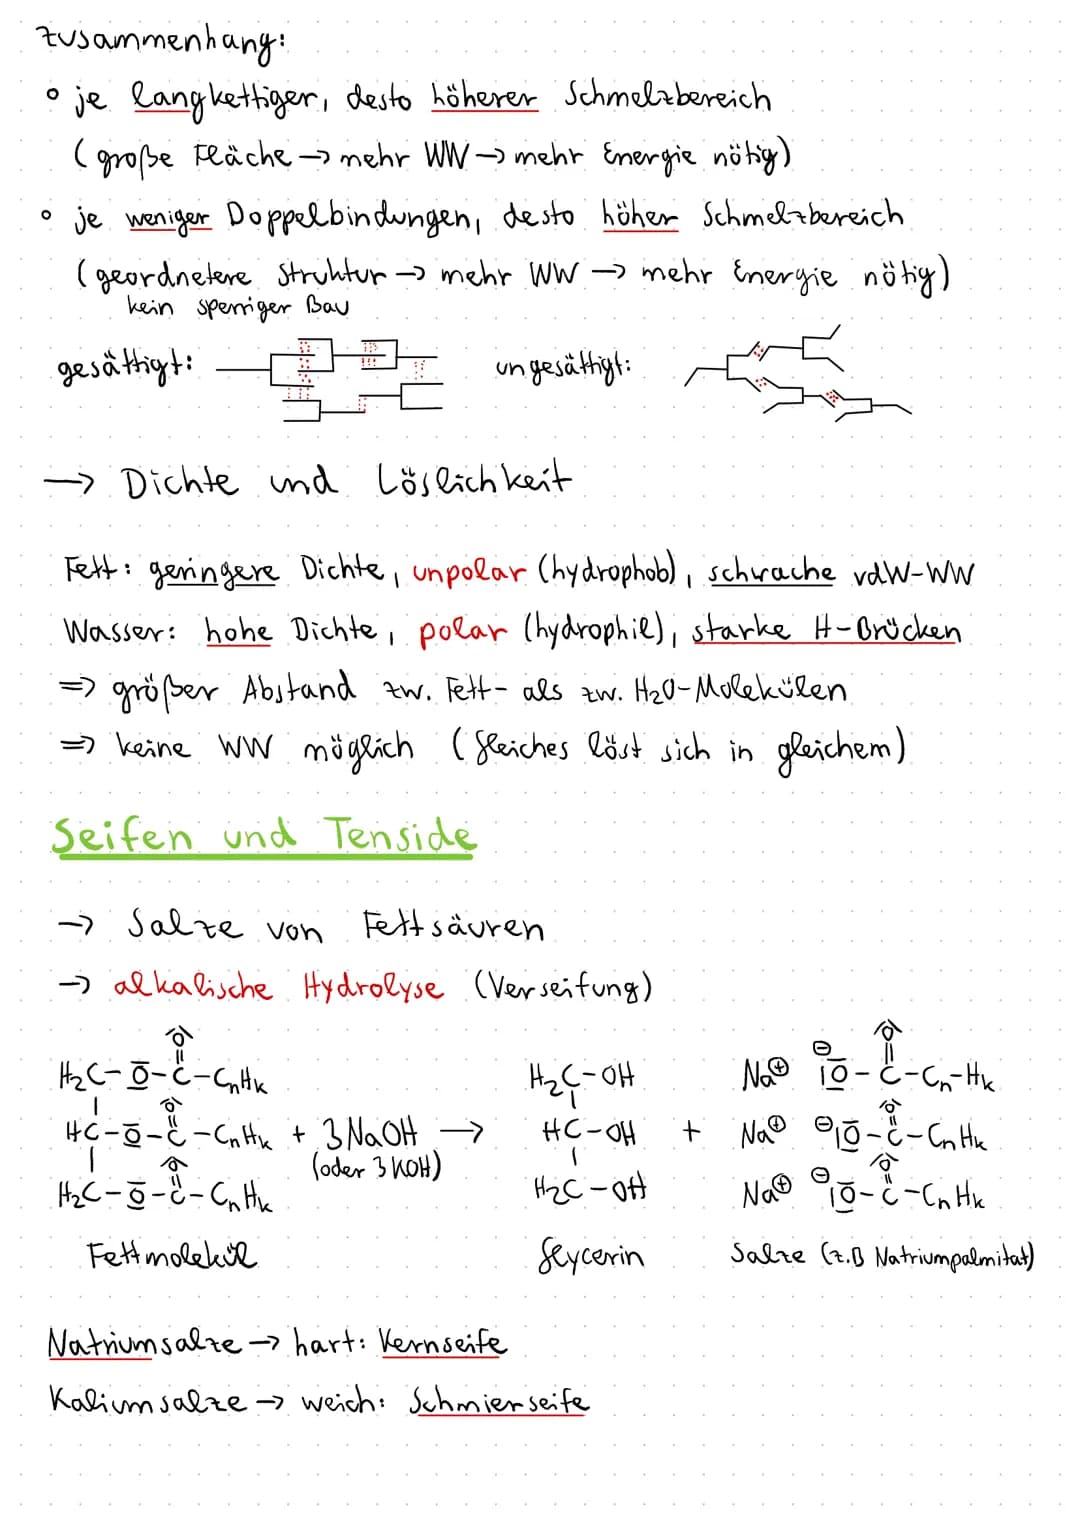 Zusammenhang:
° je langkettiger, desto höherer Schmelzbereich
(große Fläche → mehr WW → mehr Energie nötig)
° je weniger Doppelbindungen, desto höher Schmelzbereich
(geordnetere Struktur → mehr WW → mehr Energie nötig)
kein sperriger Bau
gesättigt: ungesättigt:
→ Dichte und Löslichkeit
Fett: geringere Dichte, unpolar (hydrophob), schwache vdW-WW
Wasser: hohe Dichte, polar (hydrophil), starke H-Brücken
⇒ größer Abstand zw. Fett- als zw. H₂O-Molekülen
⇒ keine WW möglich (Gleiches löst sich in gleichem)
Seifen und Tenside
→ Salze von Fettsäuren
→ alkalische Hydrolyse (Verseifung)
|O| |O|
H₂C-O-C-CₙHₖ H₂C-OH Na⊕ ⊖|O-C-Cₙ-Hₖ
|O| |O|
HC-O-C-CₙHₖ + 3 NaOH → HC-OH + Na⊕ ⊖|O-C-CₙHₖ
|O| (oder 3 KOH) |O|
H₂C-O-C-CₙHₖ H₂C-OH Na⊕ ⊖|O-C-CₙHₖ
Fettmolekül Glycerin Salze (z.B Natriumpalmitat)
Natriumsalze → hart: Kernseife
Kaliumsalze → weich: Schmierseife